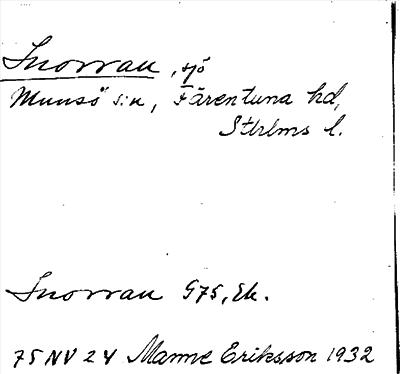 Snorran, sjö
Munsö s:n, Färentuna hd,
Sthlms l.
Snorran G75, Ek.
75 NV 24 Manne Eriksson 1932